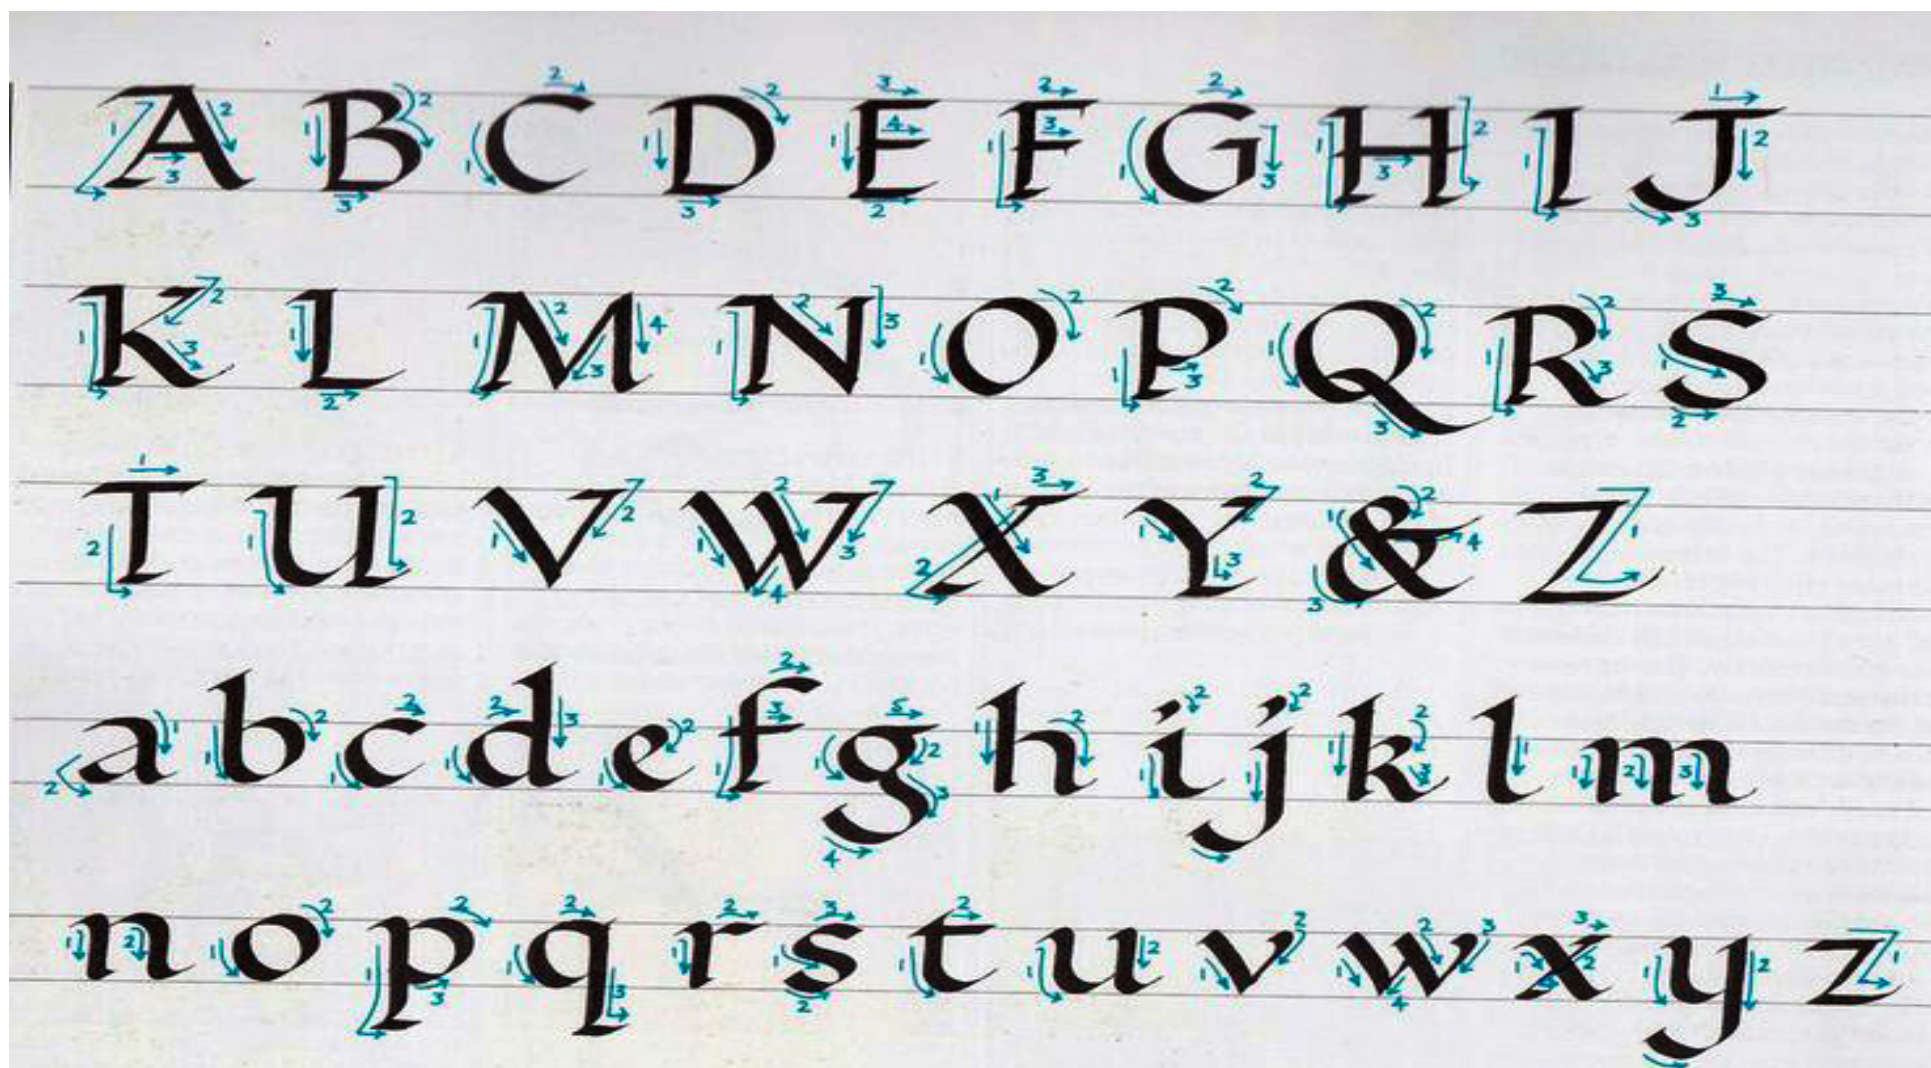 A B C D E F G H I J
K L M N O P Q R S
T U V W X Y & Z
a b c d e f g h i j k l m
n o p q r s t u v w x y z